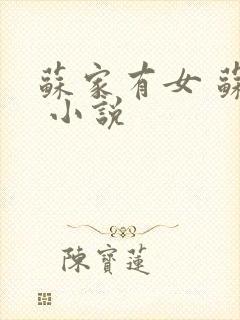 蘇家有女 蘇
小說
陳寶蓮